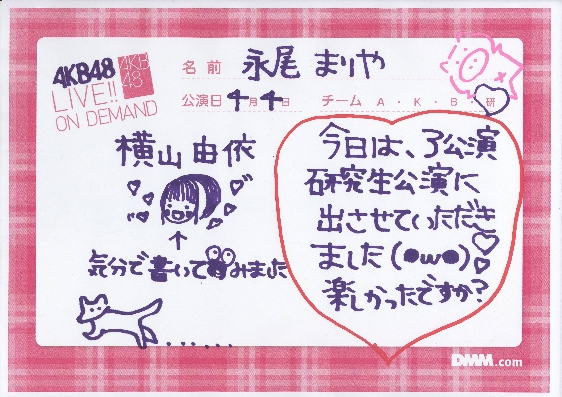 AKB48
LIVE!!
ON DEMAND
AKB
48
名前 永尾 まりや
公演日 4月4日 チーム A・K・B・研
横山由依
↑
気分で書いてみました
今日は、了公演
研究生公演に
出させていただき
ました(●ω●)
楽しかったですか?
DMM.com